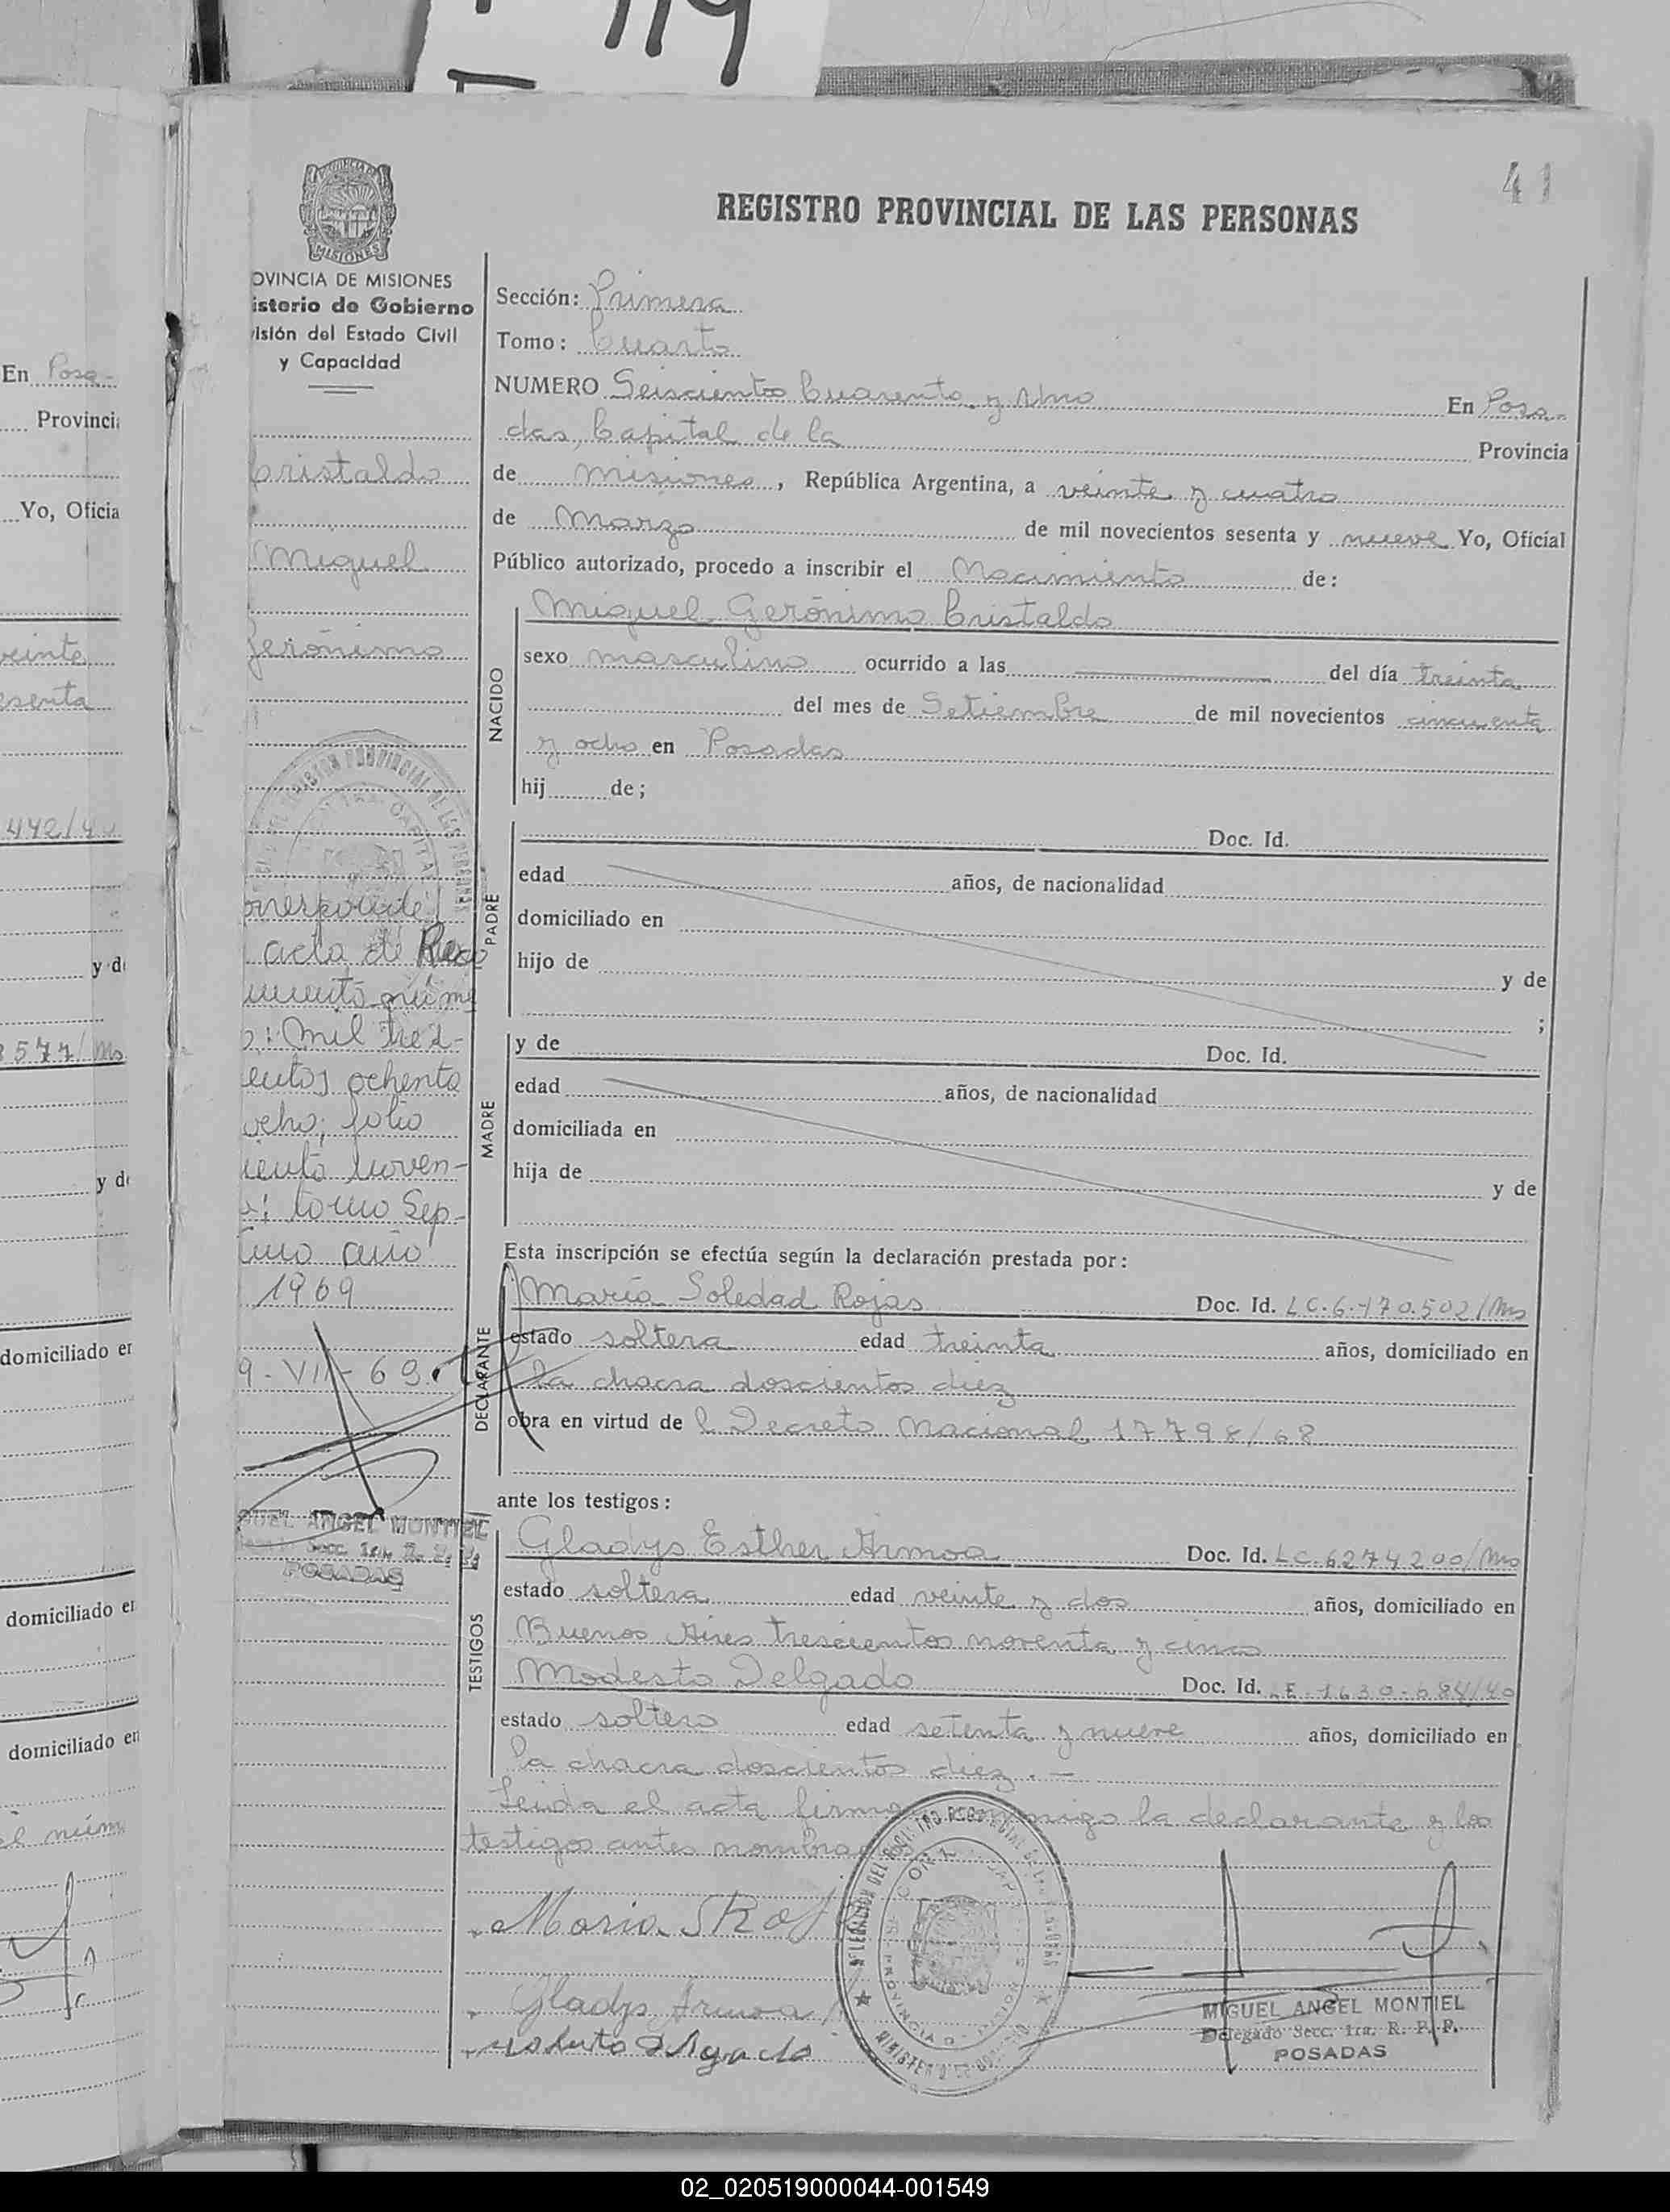 119
41
PROVINCIA DE
MISIONES
OVINCIA DE MISIONES
isterio de Gobierno
visión del Estado Civil
y Capacidad
Cristaldo
Miguel
Gerónimo
orresponde
acta de Reco
imiento núme
o: mil tres-
cientos ochenta
ocho; folio
ciento noven-
a; tomo Sép-
timo año
1969
9-VII-69.
GUEL ANGEL MONTIEL
Secc. 1ra. R. P. P.
POSADAS
REGISTRO PROVINCIAL DE LAS PERSONAS
Sección: Primera
Tomo: Cuarto
NUMERO Seiscientos Cuarenta y Uno En Posa-
das, Capital de la Provincia
de Misiones, República Argentina, a veinte y cuatro
de Marzo de mil novecientos sesenta y nueve Yo, Oficial
Público autorizado, procedo a inscribir el Nacimiento de:
NACIDO
Miguel Gerónimo Cristaldo
sexo masculino ocurrido a las del día treinta
del mes de Setiembre de mil novecientos cincuenta
y ocho en Posadas
hij de;
PADRE
Doc. Id.
edad años, de nacionalidad
domiciliado en
hijo de y de
;
MADRE
y de Doc. Id.
edad años, de nacionalidad
domiciliada en
hija de y de
Esta inscripción se efectúa según la declaración prestada por:
DECLARANTE
María Soledad Rojas Doc. Id. LC.6.170.502/Ms
estado soltera edad treinta años, domiciliado en
la chacra doscientos diez
obra en virtud de l Decreto Nacional 17798/68
ante los testigos:
TESTIGOS
Gladys Esther Armoa Doc. Id. LC.6274200/Ms
estado soltera edad veinte y dos años, domiciliado en
Buenos Aires trescientos noventa y cinco
Modesto Delgado Doc. Id. LE 1630.684/40
estado soltero edad setenta y nueve años, domiciliado en
la chacra doscientos diez.—
Leida el acta firma conmigo la declarante y los
testigos antes nombra
Maria S Roj
Gladys Armoa
MIGUEL ANGEL MONTIEL
Delegado Secc. 1ra. R. P. P.
POSADAS
En Posa-
Provinci
Yo, Oficia
veinte
esenta
442/40
y d
8577/Ms
y d
domiciliado en
domiciliado en
domiciliado en
el núm
02_020519000044-001549